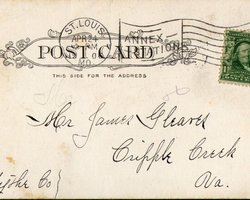 ST. LOUIS
APR 24
AM
MO.
ANNEX
STATION
POST CARD
THIS SIDE FOR THE ADDRESS
Mr James Gleaves
Cripple Creek
Va.
Co}